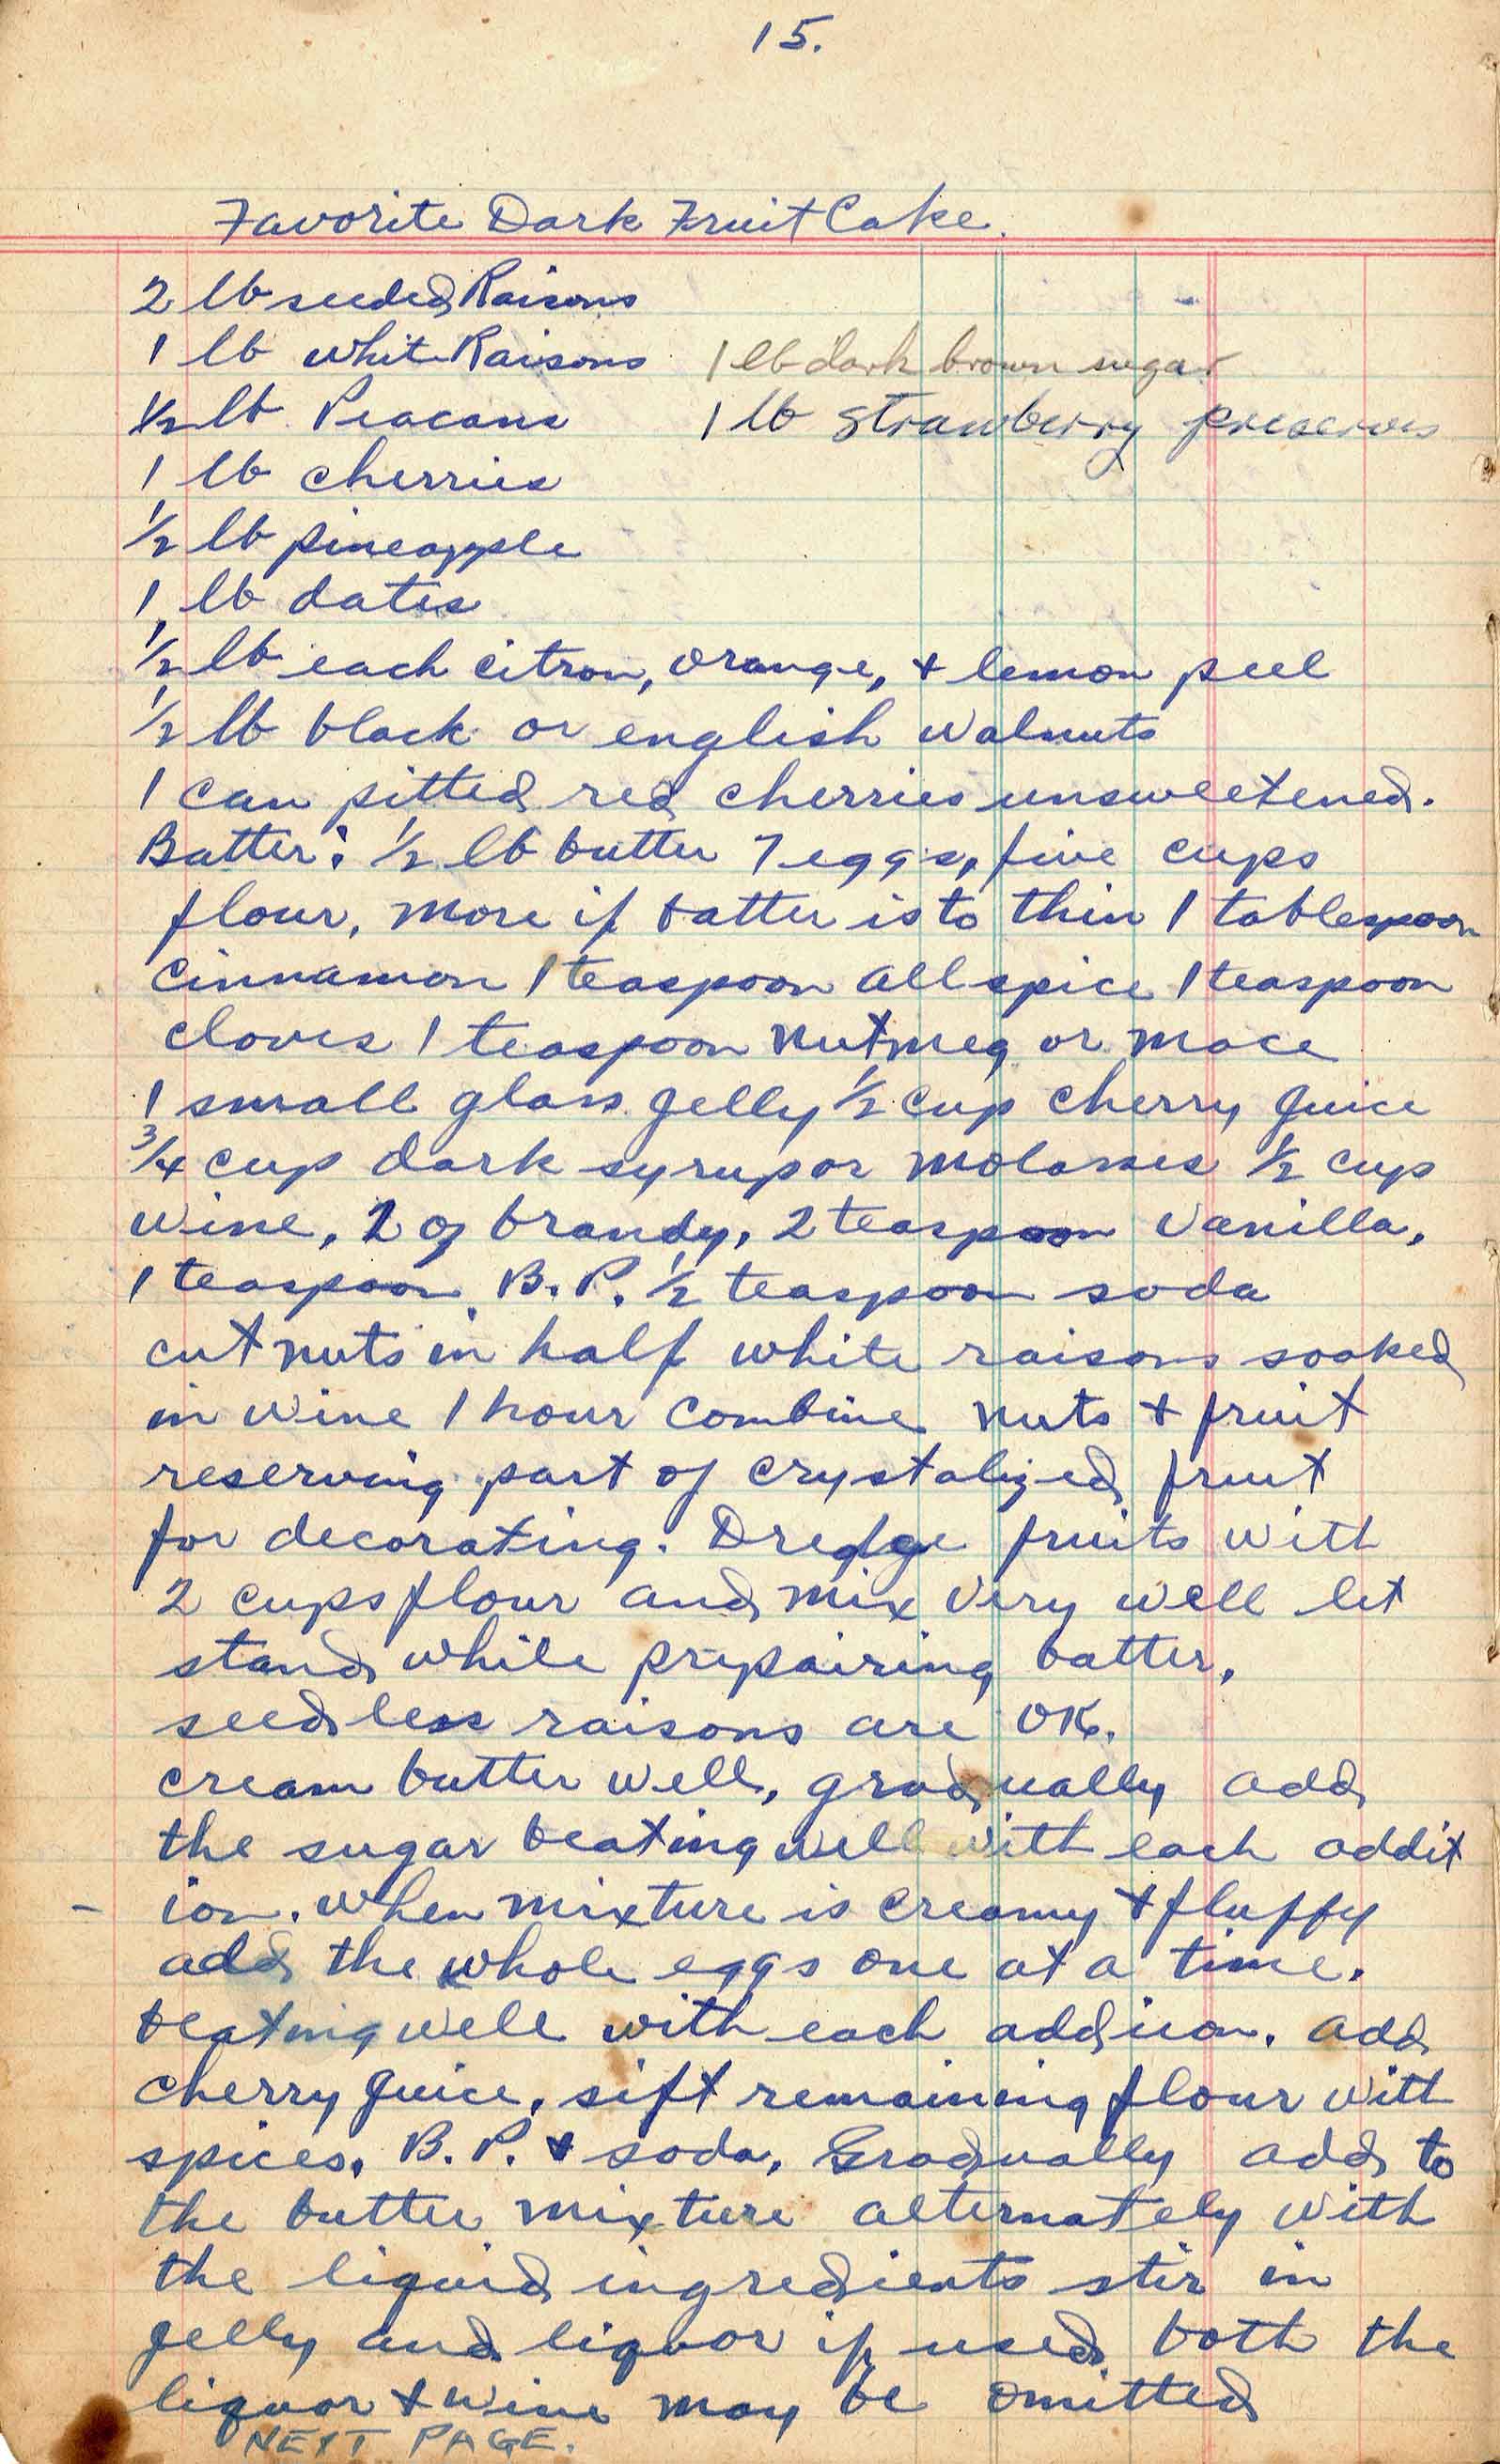 15.
Favorite Dark Fruit Cake.
2 lb seeded Raisons
1 lb whit Raisons 1 lb dark brown sugar
1/2 lb Peacans 1 lb strawberry preserves
1 lb cherries
1/2 lb pineapple
1 lb dates
1/2 lb each citron, orange, + lemon peel
1/2 lb black or english walnuts
1 can pitted red cherries unsweetened.
Batter: 1/2 lb butter 7 eggs, five cups
flour, more if batter is to thin 1 tablespoon
cinnamon 1 teaspoon allspice 1 teaspoon
cloves 1 teaspoon nutmeg or mace
1 small glass jelly 1/2 cup cherry juice
3/4 cup dark syrup or molasses 1/2 cup
wine, 2 oz brandy, 2 teaspoon vanilla,
1 teaspoon B.P. 1/2 teaspoon soda
cut nuts in half white raisons soaked
in wine 1 hour combine nuts + fruit
reserving part of crystalized fruit
for decorating. Dredge fruits with
2 cups flour and mix very well let
stand while prepairing batter.
seedless raisons are OK.
cream butter well, gradually add
the sugar beating well with each addit
- ion. When mixture is creamy + fluffy
add the whole eggs one at a time.
beating well with each addiion. add
cherry juice, sift remaining flour with
spices. B.P. + soda, Gradually add to
the butter mixture alternately with
the liquid ingredients stir in
jelly and liquor if used both the
liquor + wine may be omitted
NEXT PAGE.